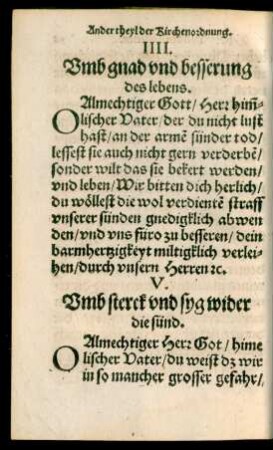 Ander theyl der Kirchenordnung.
IIII.
Vmb gnad vnd besserung
des lebens.
O Almechtiger Gott/ Herr him̃
lischer Vater/ der du nicht lust
hast/ an der armẽ sünder tod/
lessest sie auch nicht gern verderbẽ/
sonder wilt das sie bekert werden/
vnd leben/ Wir bitten dich herlich/
du wöllest die wol verdientẽ straff
vnserer sünden gnedigklich abwen
den/ vnd vns füro zu besseren/ dein
barmhertzigkeyt miltigklich verlei-
hen/ durch vnsern Herren ꝛc.
V.
Vmb sterck vnd syg wider
die sünd.
O Almechtiger Herr Got/ hime
lischer Vater/ du weist dz wir
in so mancher grosser gefahr/